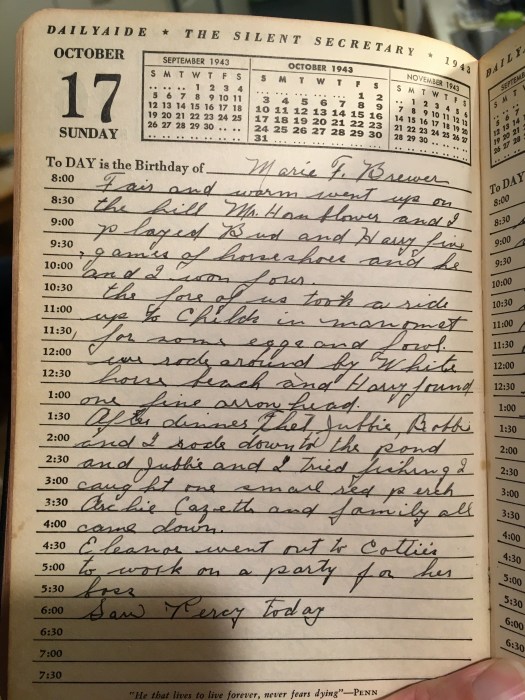 DAILYAIDE ★ THE SILENT SECRETARY ★ 1943
OCTOBER
17
SUNDAY
SEPTEMBER 1943
S M T W T F S
. . . 1 2 3 4
5 6 7 8 9 10 11
12 13 14 15 16 17 18
19 20 21 22 23 24 25
26 27 28 29 30 . .
OCTOBER 1943
S M T W T F S
. . . . . 1 2
3 4 5 6 7 8 9
10 11 12 13 14 15 16
17 18 19 20 21 22 23
24 25 26 27 28 29 30
31
NOVEMBER 1943
S M T W T F S
. 1 2 3 4 5 6
7 8 9 10 11 12 13
14 15 16 17 18 19 20
21 22 23 24 25 26 27
28 29 30 . . . .
To DAY is the Birthday of Marie F. Brewer
8:00 Fair and warm went up on
8:30 the hill Mr. Hornblower and I
9:00 played Bud and Harry five
9:30 games of horseshoes and he
10:00 and I won four
10:30 the fore of us took a ride
11:00 up to Childs in manomet
11:30 for some eggs and fowl.
12:00 we rode around by White
12:30 horse beach and Harry found
1:00 one fine arrow head.
1:30 After dinner Chet, Jubbie, Bobbie
2:00 and I rode down to the pond
2:30 and Jubbie and I tried fishing I
3:00 caught one small red perch
3:30 Archie and family all
4:00 came down.
4:30 Eleanor went out to Cotties
5:00 to work on a party for her
5:30 boss
6:00 Saw Percy today
6:30
7:00
7:30
"He that lives to live forever, never fears dying"—PENN
DAILY
SEPTEMB
To DAY
8:00
8:30
9:00
9:30
10:00
10:30
11:00
11:30
12:00
12:30
1:00
1:30
2:00
2:30
3:00
3:30
4:00
4:30
5:00
5:30
6:00
6:30